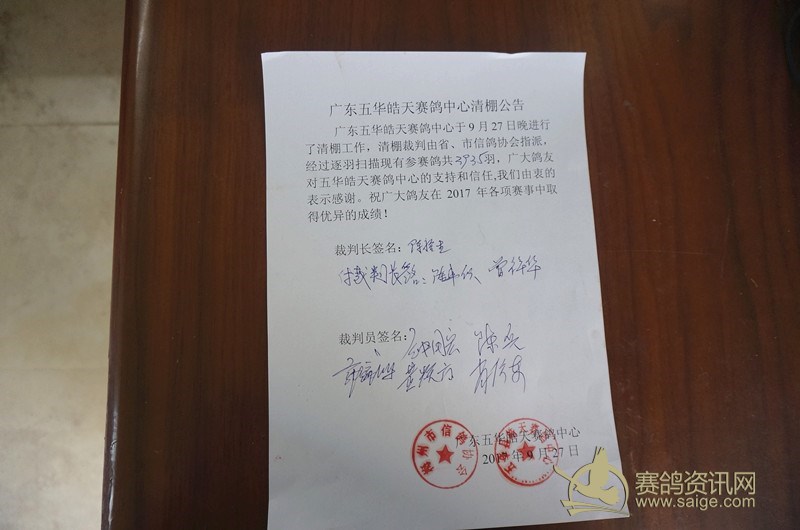 广东五华皓天赛鸽中心清棚公告
广东五华皓天赛鸽中心于9月27日晚进行
了清棚工作，清棚裁判由省、市信鸽协会指派，
经过逐羽扫描现有参赛鸽共3935羽，广大鸽友
对五华皓天赛鸽中心的支持和信任,我们由衷的
表示感谢。祝广大鸽友在 2017 年各项赛事中取
得优异的成绩！
裁判长签名：
付裁判长签名： 曾
裁判员签名：
陈
梅州市信鸽协会
广东五华皓天赛鸽中心
2017年9月27日
赛鸽资讯网
www.saige.com